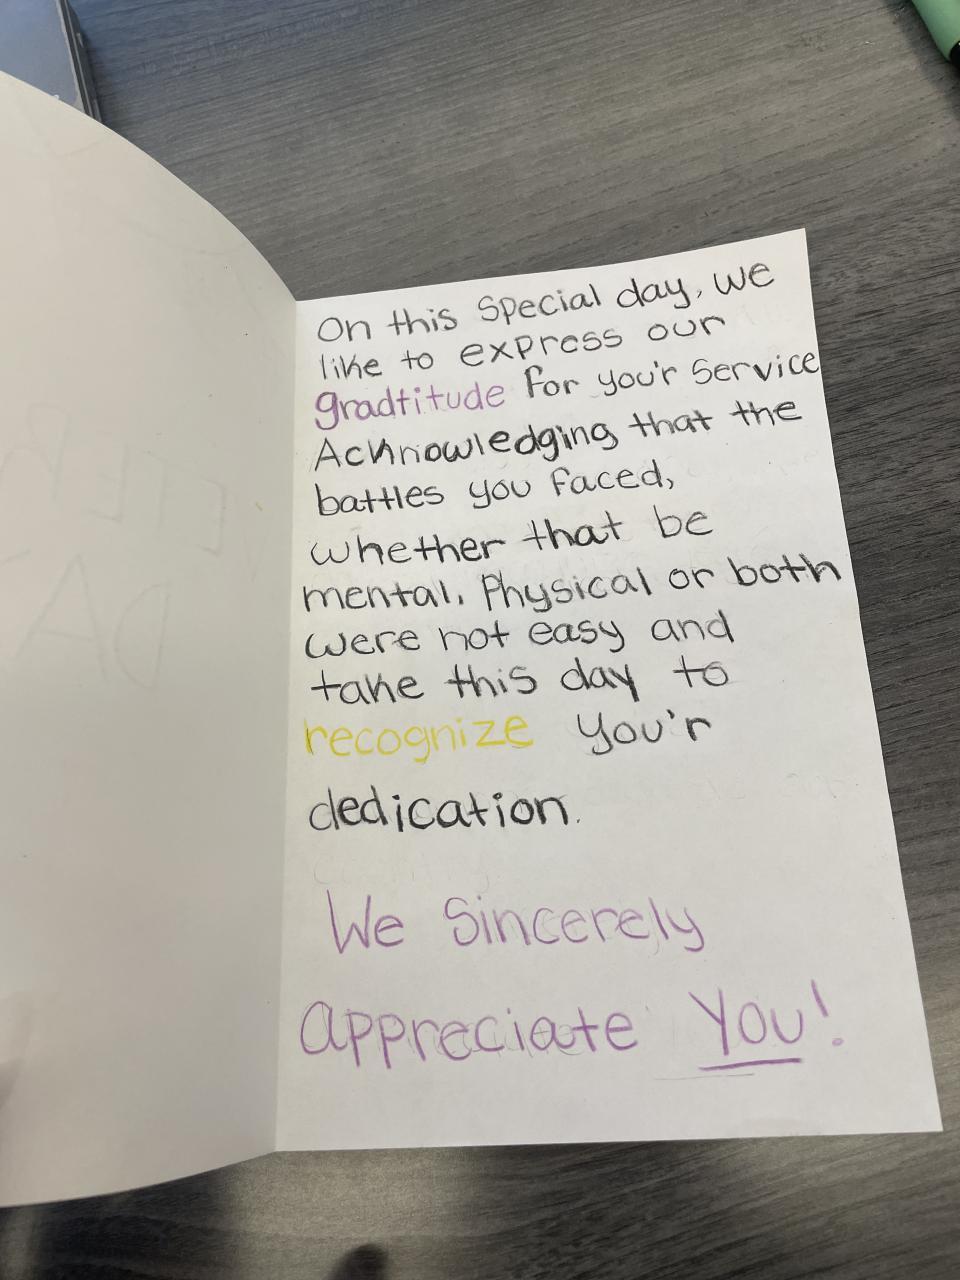 On this Special day, we
like to express our
gradtitude for you'r Service
Acknowledging that the
battles you faced,
whether that be
mental, Physical or both
were not easy and
take this day to
recognize you'r
dedication.
We Sincerely
appreciate You!